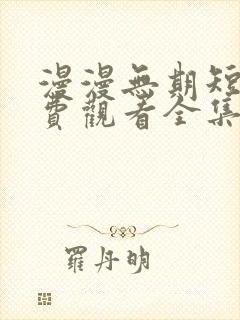 漫漫無期短
費觀看全集
羅丹明